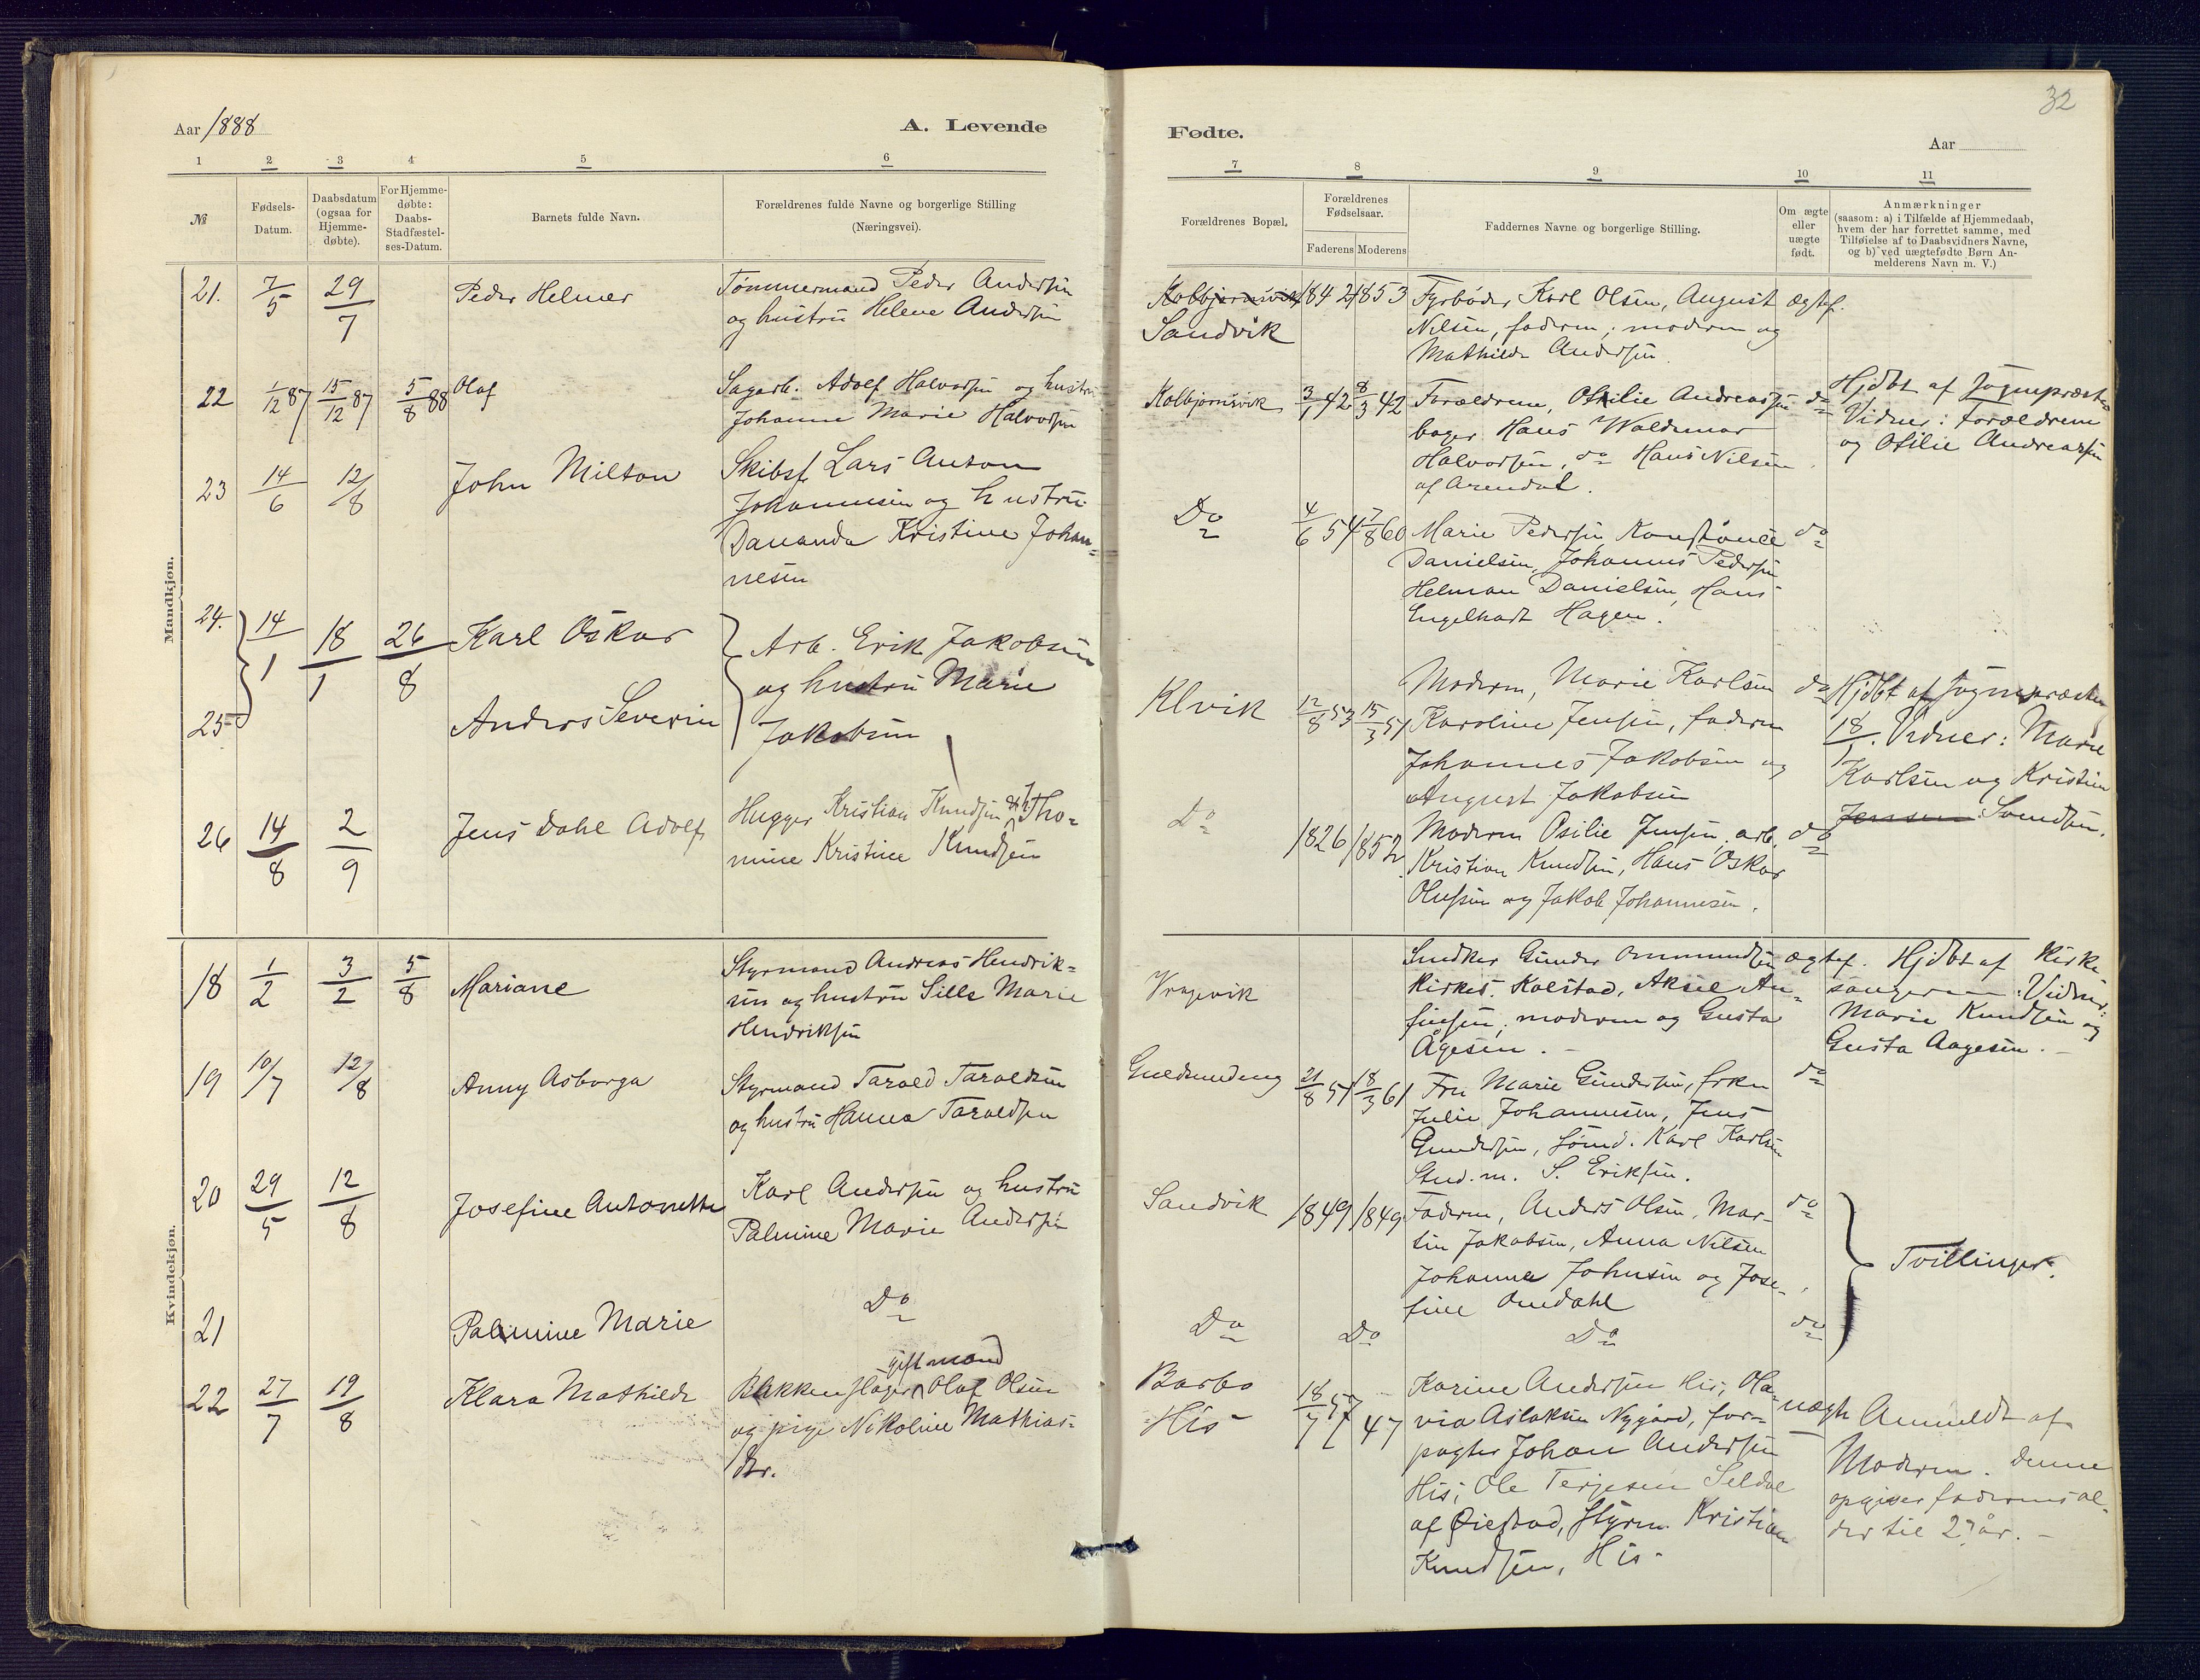 Aar 1888
A. Levende
1 2 3 4 5 6
№
Fødsels-
Datum.
Daabsdatum
(ogsaa for
Hjemme-
døbte).
For Hjemme-
døbte:
Daabs-
Stadfæstel-
ses-Datum.
Barnets fulde Navn.
Forældrenes fulde Navne og borgerlige Stilling
(Næringsvei).
Mandkjøn.
21. 7/5 29/7 Peder Helmer
Tømmermand Peder Andersen
og hustru Helene Andersen
22 1/12 87 15/12 87 5/8 88 Olaf
Sagarb. Adolf Halvorsen og hustru
Johanne Marie Halvorsen
23 14/6 12/8 John Milton
Skibsf. Lars Anton
Johannesen og hustru
Dananda Kristine Johan-
nesen
24. 14/1 18/1 26/8 Karl Oskar
25 Anders Severin
Arb. Erik Jakobsen
og hustru Marie
Jakobsen
26 14/8 2/9 Jens Dahl Adolf
Hugger Kristian Knudsen & h. Tho-
mine Kristine Knudsen
Kvindekjøn.
18 1/2 3/2 5/8 Mariane
Styrmand Andreas Hendrik-
sen og hustru Sille Marie
Hendriksen
19 10/7 12/8 Anny Asborga
Styrmand Tarald Taraldsen
og hustru Hanna Taraldsen
20 29/5 12/8 Josefine Antonette
Karl Andersen og hustru
Palmine Marie Andersen
21 Palmine Marie
Do
22 27/7 19/8 Klara Mathilde
gift mand
Bakkenslager Olaf Olsen
og pige Nikoline Mathias-
dtr.
32
Fødte.
Aar
7 8 9 10 11
Forældrenes Bopæl.
Forældrenes
Fødselsaar.
Faderens Moderens
Faddernes Navne og borgerlige Stilling.
Om ægte
eller
uægte
født.
Anmærkninger
(saasom: a) i Tilfælde af Hjemmedaab,
hvem der har forrettet samme, med
Tilføielse af to Daabsvidners Navne,
og b) ved uægtefødte Børn An-
melderens Navn m. V.)
Kolbjørnsvik 1842 1853
Sandvik
Fyrbøder Karl Olsen, August ægtef.
Nilsen, faderen, moderen og
Mathilde Andersen.
Kolbjørnsvik 3/1 42 8/3 42
Forældrene, Otilie Andreassen do
bager Hans Waldemar
Halvorsen, do Hans Nilsen
af Arendal.
Hjdbt af Sognepræsten
Vidner: Forældrene
og Otilie Andreassen
Do 4/6 54 7/8 60
Marie Pedersen Konstance do
Danielsen, Johannes Pedersen
Helman Danielsen, Hans
Engelhart Hagen.
Klvik 12/8 53 15/3 51
Moderen, Marie Karlsen do
Karoline Jensen, faderen
Johannes Jakobsen og
August Jakobsen
Hjdbt af Sognepræsten
18/1. Vidner: Marie
Karlsen og Kristine
Jensen Svendsen.
Do 1826 1852
Moderen Osilie Jensen, arb. do
Kristian Knudsen, Hans Oskar
Olufsen og Jakob Johannesen.
Vragevik
Snedker Gunder Ommundsen ægtef.
Kirkes. Kalstad, Aksel An-
finsen, moderen og Gusta
Ågesen. -
Hjdbt af Kirke-
sangeren. Vidner:
Marie Knudsen og
Gusta Aagesen. -
Guldsmedeng 21/8 51 18/3 61
Fru Marie Gundersen, frkn do
Julie Johannesen, Jens
Gundersen, Sømd. Karl Karlsen
Stud. m. S. Eriksen.
Sandvik 1849 1849
Faderen, Anders Olsen, Mar- do
tin Jakobsen, Anna Nilsen
Johanne Johnsen og Jose-
fine Omdahl
Tvillinger.
Do Do Do do
Barbo 18/7 57
His 47
Karine Andersen His, Ola- uægte
via Aslaksen Nygård, for-
pagter Johan Andersen
His, Ole Terjesen Seldal
af Øiestad, Styrm. Kristian
Knudsen, His -
Anmeldt af
Moderen. Denne
opgiver faderens al-
der til 27 år. -